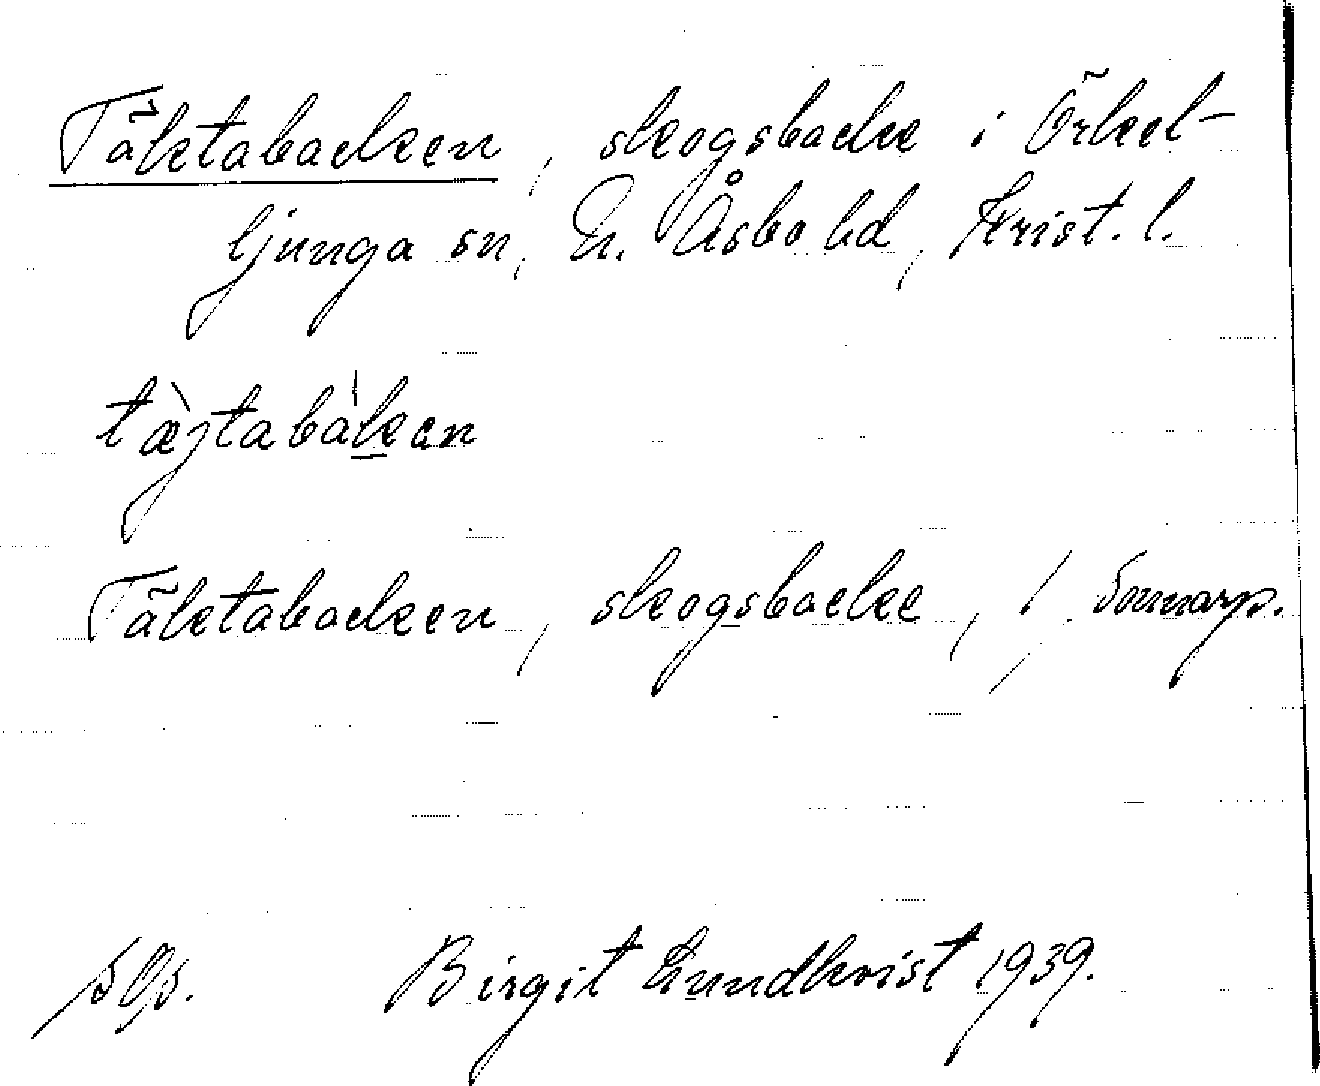 Täktabacken, skogsbacke i Örkel-
ljunga sn, N. Åsbo hd, Krist. l.
tæ̀jtabàkan
Täktabacken, skogsbacke, 1. Sonnarp.
Birgit Lundkvist 1939.